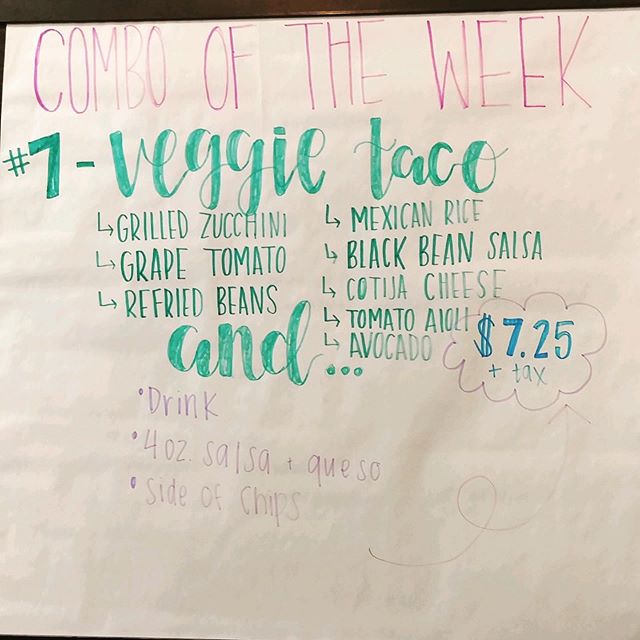 COMBO OF THE WEEK
#7 - veggie taco
↳ GRILLED ZUCCHINI
↳ GRAPE TOMATO
↳ REFRIED BEANS
↳ MEXICAN RICE
↳ BLACK BEAN SALSA
↳ COTIJA CHEESE
↳ TOMATO AIOLI
↳ AVOCADO
$7.25
+ tax
and...
• Drink
• 4oz. salsa + queso
• side of chips